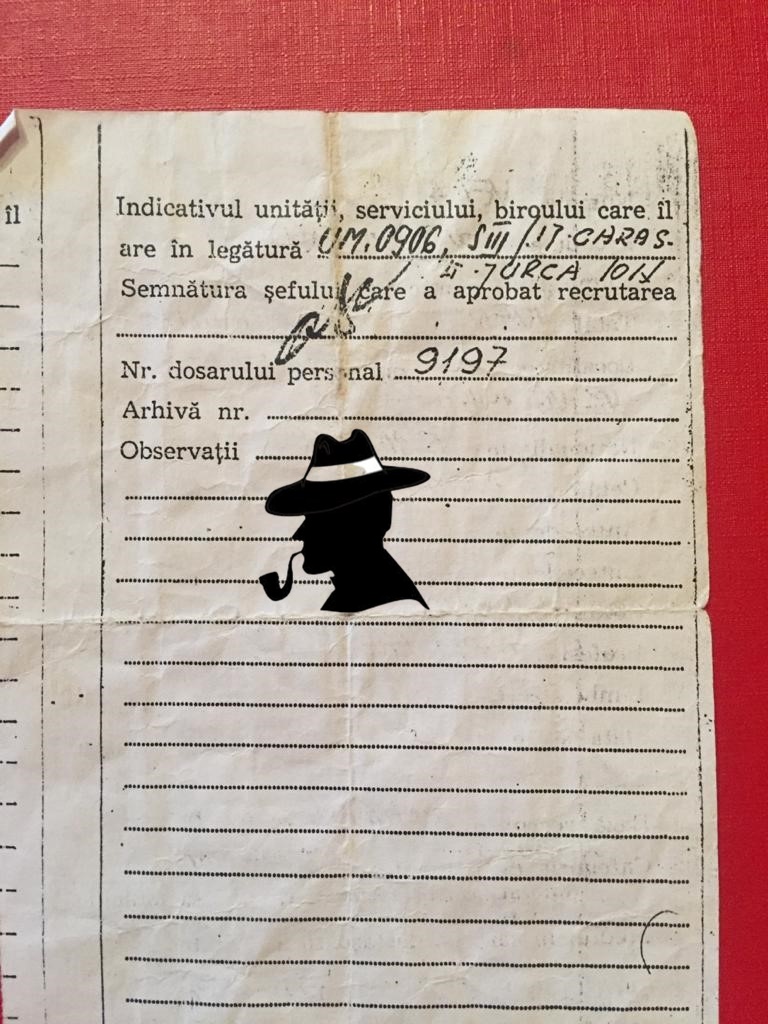 îl
Indicativul unității, serviciului, biroului care îl
are în legătură UM.0906, SIII/17 CARAȘ.
JURCA
Semnătura șefului care a aprobat recrutarea
Nr. dosarului personal 9197
Arhivă nr.
Observații